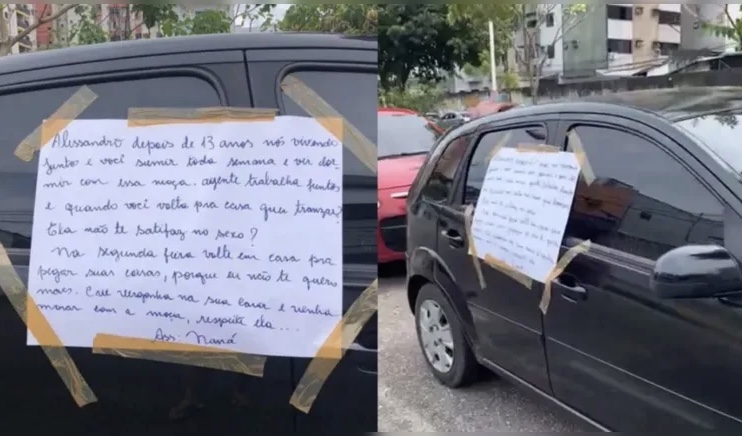 Alessandro depois de 13 anos nós vivendo
junto e você sumir toda semana e vir dor-
mir com essa moça. agente trabalha juntos
e quando você volta pra casa quer transar?
Ela não te satifaz no sexo?
Na segunda feira volte em casa pra
pegar suas coisas, porque eu não te quero
mais. Crie vergonha na sua cara e venha
morar com a moça, respeite ela...
Ass. Naná